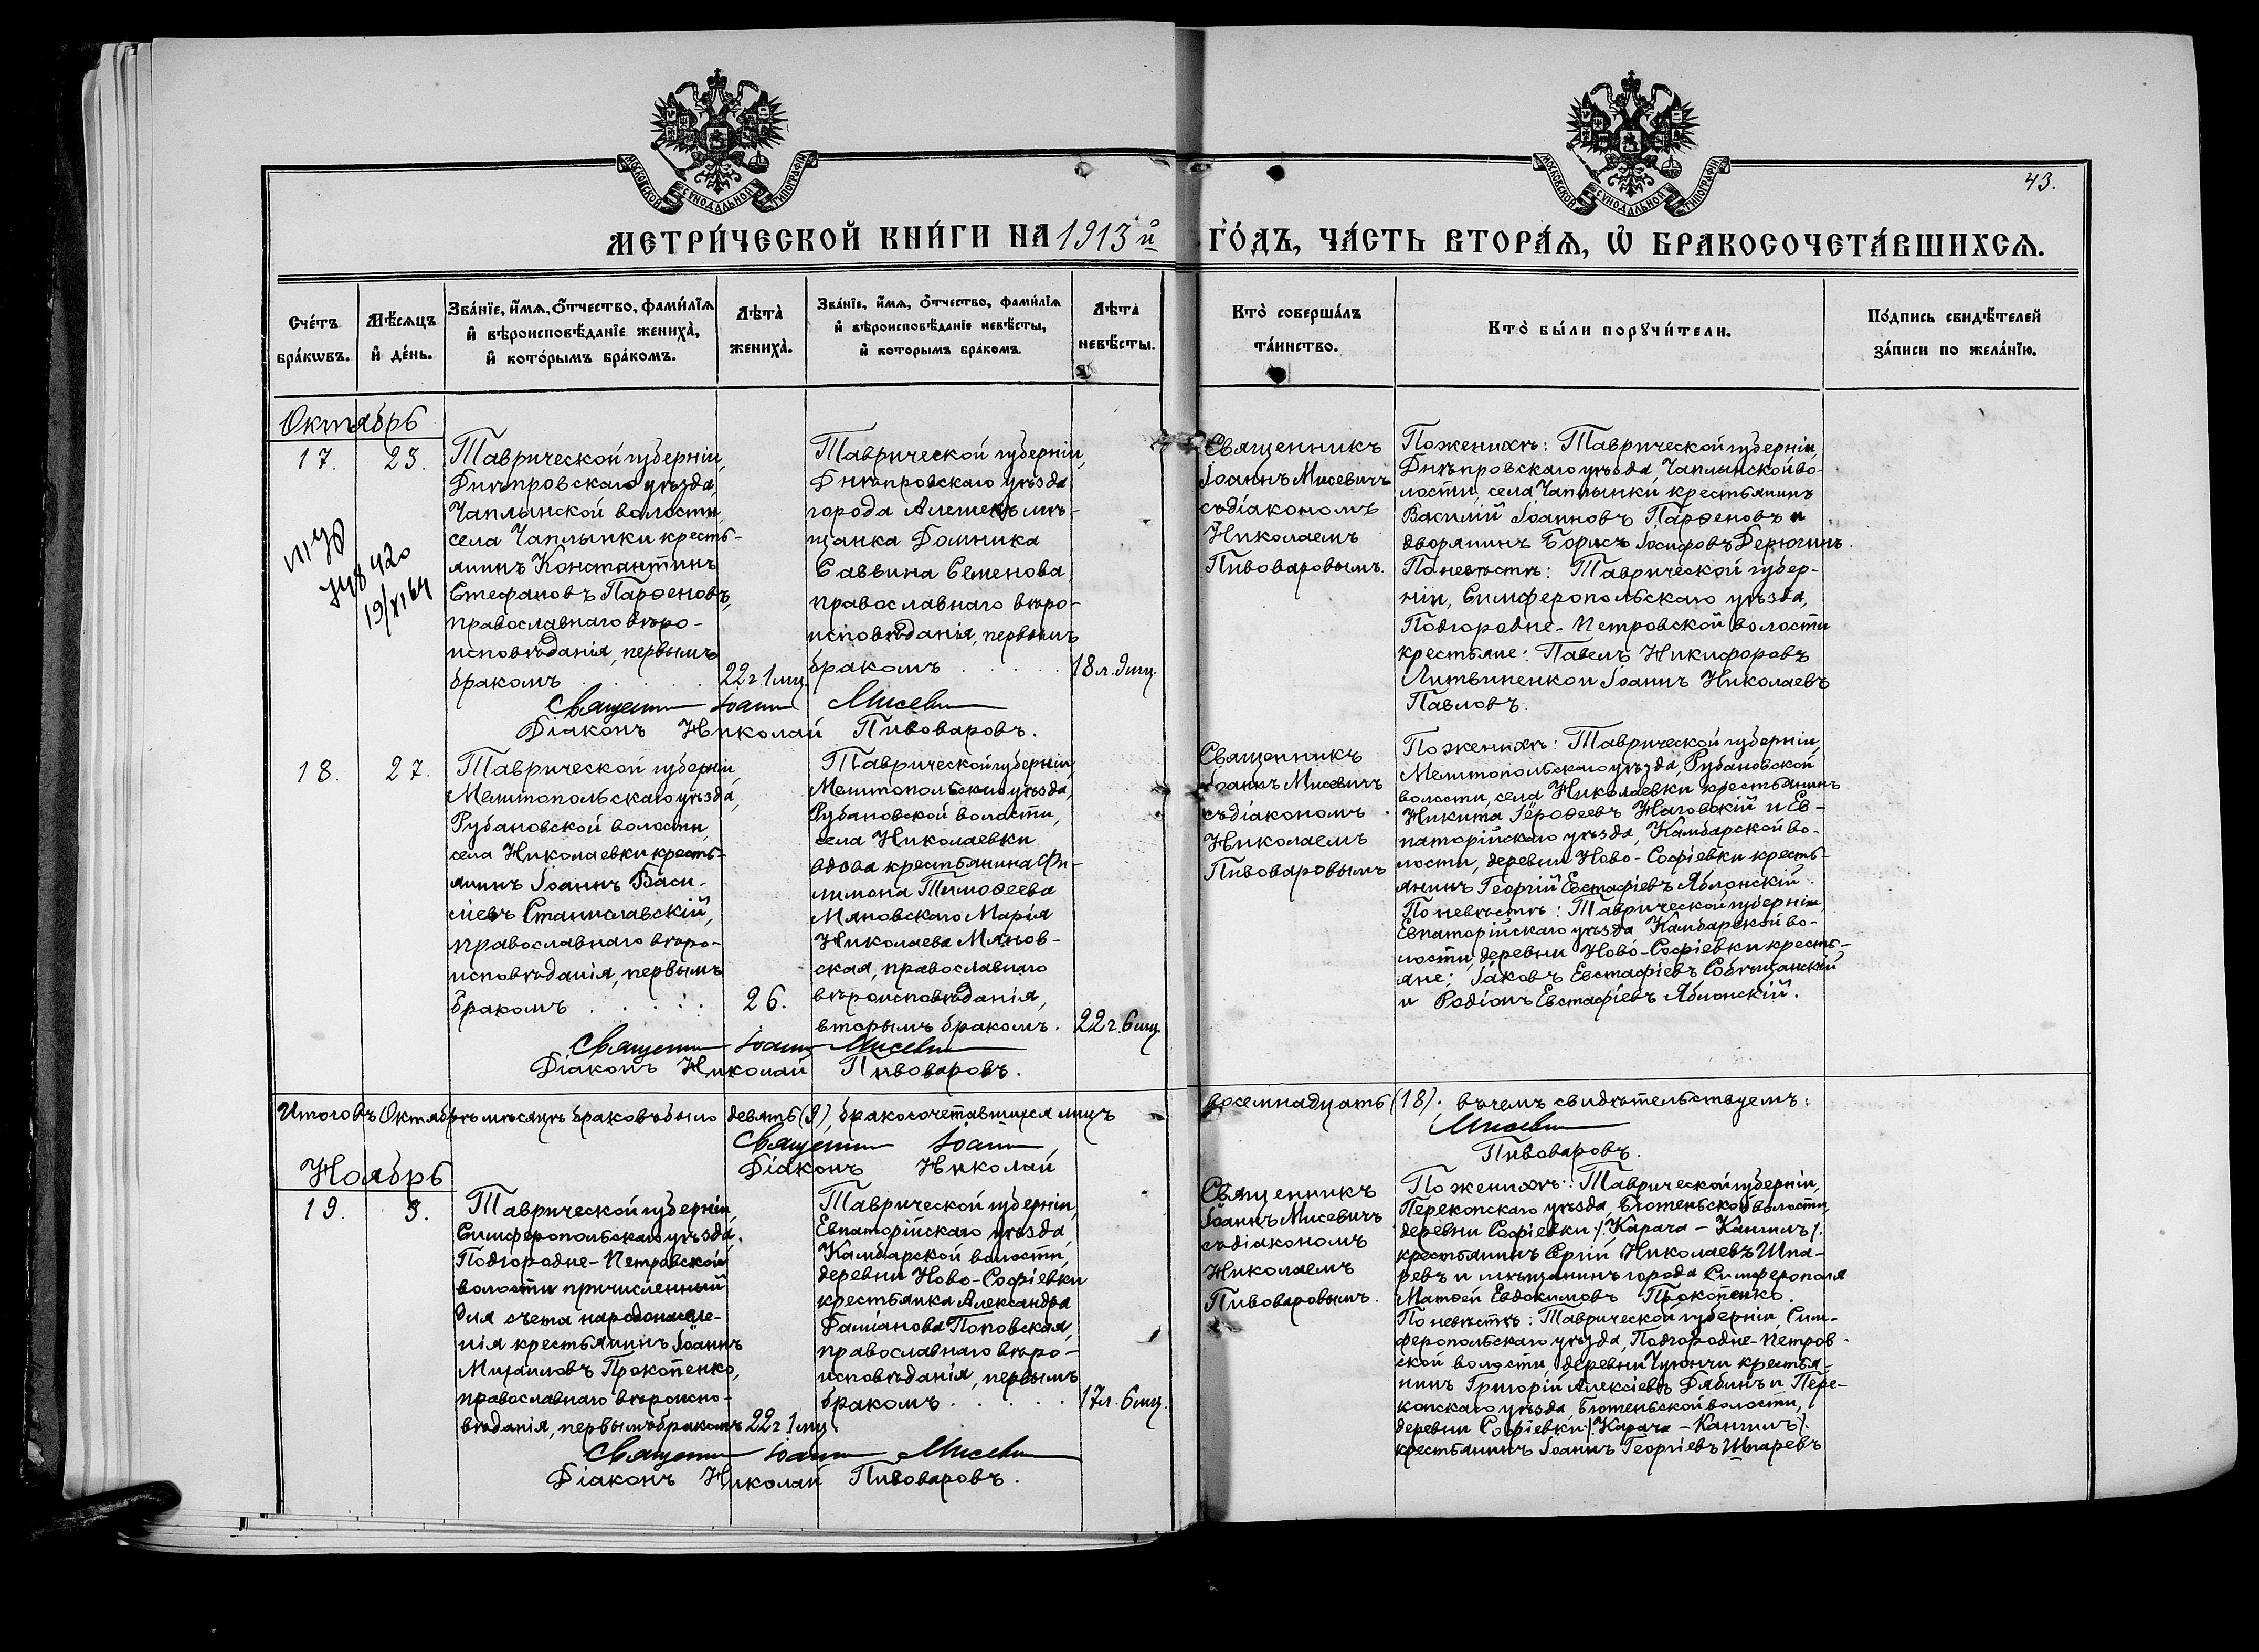 МОСКОВСКОЙ СѴНОДАЛЬНОЙ ТИПОГРАФІИ
МОСКОВСКОЙ СѴНОДАЛЬНОЙ ТИПОГРАФІИ
43.
МЕТРИ́ЧЕСКОЙ КНИ́ГИ НА 1913й ГО́ДЪ, ЧА́СТЬ ВТОРА́Я, Ѡ҆ БРАКОСОЧЕТА́ВШИХСЯ.
Сче́тъ
бра́кѡвъ.
Мѣ́сяцъ
и҆ де́нь.
Зва́нїе, и҆́мя, о҆́тчество, фами́лїя
и҆ вѣроисповѣ́данїе жениха̀,
и҆ кото́рымъ бра́комъ.
Лѣта̀
жениха̀.
Зва́нїе, и҆́мя, о҆́тчество, фами́лїя
и҆ вѣроисповѣ́данїе невѣ́сты,
и҆ которымъ бра́комъ.
Лѣта̀
невѣ́сты.
Кто̀ соверша́лъ
та́инство.
Кто̀ бы́ли порꙋчи́тели.
По́дпись свидѣ́телей
за́писи по жела́нїю.
Октябрь
17.
23.
Таврической губерніи,
Днѣпровскаго уѣзда,
Чаплынской волости,
села Чаплынки кресть-
янинъ Константинъ
Стефановъ Парѳеновъ,
православнаго вѣро-
исповѣданія, первымъ
бракомъ
22 г. 1 мц.
Таврической губерніи,
Днѣпровскаго уѣзда
города Алешекъ мѣ-
щанка Домника
Саввина Семенова,
православнаго вѣро-
исповѣданія, первымъ
бракомъ
18 л. 9 мц.
19/XI 64
Священникъ Іоаннъ Мисевичъ
Діаконъ Николай Пивоваровъ.
Священникъ
Іоаннъ Мисевичъ
съ діакономъ
Николаемъ
Пивоваровымъ.
По женихѣ: Таврической губерніи,
Днѣпровскаго уѣзда, Чаплынской во-
лости, села Чаплынки крестьянинъ
Василій Іоанновъ Парѳеновъ и
дворянинъ Борисъ Іосифовъ Дерюгинъ.
По невѣстѣ: Таврической губер-
ніи, Симферопольскаго уѣзда,
Подгородне-Петровской волости
крестьяне: Павелъ Никифоровъ
Литвиненко и Іоаннъ Николаевъ
Павловъ.
18.
27.
Таврической губерніи,
Мелитопольскаго уѣзда,
Рубановской волости,
села Николаевки кресть-
янинъ Іоаннъ Васи-
ліевъ Станиславскій,
православнаго вѣро-
исповѣданія, первымъ
бракомъ
26.
Таврической губерніи,
Мелитопольскаго уѣзда,
Рубановской волости,
села Николаевки
вдова крестьянина Фи-
лимона Тимоѳеева
Мяновскаго Марія
Николаева Мянов-
ская, православнаго
вѣроисповѣданія,
вторымъ бракомъ.
22 г. 6 мц.
Священникъ Іоаннъ Мисевичъ
Діаконъ Николай Пивоваровъ.
Священникъ
Іоаннъ Мисевичъ
съ діакономъ
Николаемъ
Пивоваровымъ
По женихѣ: Таврической губерніи,
Мелитопольскаго уѣзда, Рубановской
волости, села Николаевки крестьянинъ
Никита Нагов­скій и Ев-
паторійскаго уѣзда, Камбарской во-
лости, деревни Ново-Софіевки кресть-
янинъ Георгій Евстафіевъ Яблонскій.
По невѣстѣ: Таврической губерніи,
Евпаторійскаго уѣзда Камбарской во-
лости, деревни Ново-Софіевки кресть-
яне: Іаковъ Евстафіевъ
и Родіонъ Евстафіевъ Яблонскій.
Итого въ Октябрѣ мѣсяцѣ браковъ было девять (9), бракосочетавшихся лицъ восемнадцать (18), въ чемъ свидѣтельствуемъ:
Священникъ Іоаннъ Мисевичъ
Діаконъ Николай Пивоваровъ.
Ноябрь
19.
3.
Таврической губерніи,
Симферопольскаго уѣзда,
Подгородне-Петровской
волости причисленный
для счета народонаселе-
нія крестьянинъ Іоаннъ
Михаиловъ Прокопенко,
православнаго вѣроиспо-
вѣданія, первымъ бракомъ
22 г. 1 мц.
Таврической губерніи,
Евпаторійскаго уѣзда,
Камбарской волости,
деревни Ново-Софіевки
крестьянка Александра
Даміанова Поповская,
православнаго вѣро-
исповѣданія, первымъ
бракомъ
17 л. 6 мц.
Священникъ Іоаннъ Мисевичъ
Діаконъ Николай Пивоваровъ.
Священникъ
Іоаннъ Мисевичъ
съ діакономъ
Николаемъ
Пивоваровымъ.
По женихѣ: Таврической губерніи,
Перекопскаго уѣзда, Бютеньской волости,
деревни Софіевки /:Карача-Кангилъ:/
крестьянинъ Сергій Николаевъ Шпа-
ревъ и мѣщанинъ города Симферополя
Матѳей Евдокимовъ Прокопенко.
По невѣстѣ: Таврической губерніи, Сим-
феропольскаго уѣзда, Подгородне-Петров-
ской волости, деревни Чуюнчи крестья-
нинъ Григорій Алексіевъ Дябинъ и Пере-
копскаго уѣзда, Бютеньской волости,
деревни Софіевки /:Карача-Кангилъ:/
крестьянинъ Іоаннъ Георгіевъ Шпаревъ